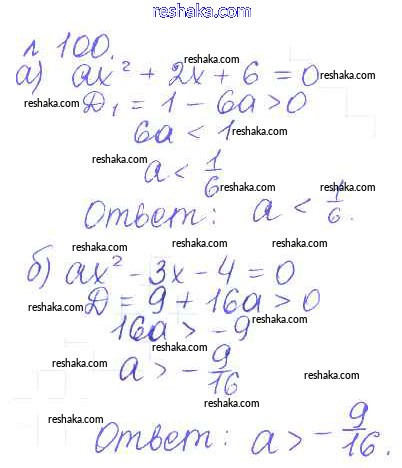 reshaka.com
л. 100.
reshaka.com
а) ax² + 2x + 6 = 0
reshaka.com reshaka.com
Д₁ = 1 - 6a > 0
6a < 1
reshaka.com
reshaka.com
a < 1/6
reshaka.com reshaka.com
Ответ: a < 1/6.
reshaka.com reshaka.com reshaka.com
б) ax² - 3x - 4 = 0
reshaka.com
Д = 9 + 16a > 0
reshaka.com
16a > -9
reshaka.com
a > - 9/16
reshaka.com
reshaka.com
Ответ: a > - 9/16.
reshaka.com reshaka.com